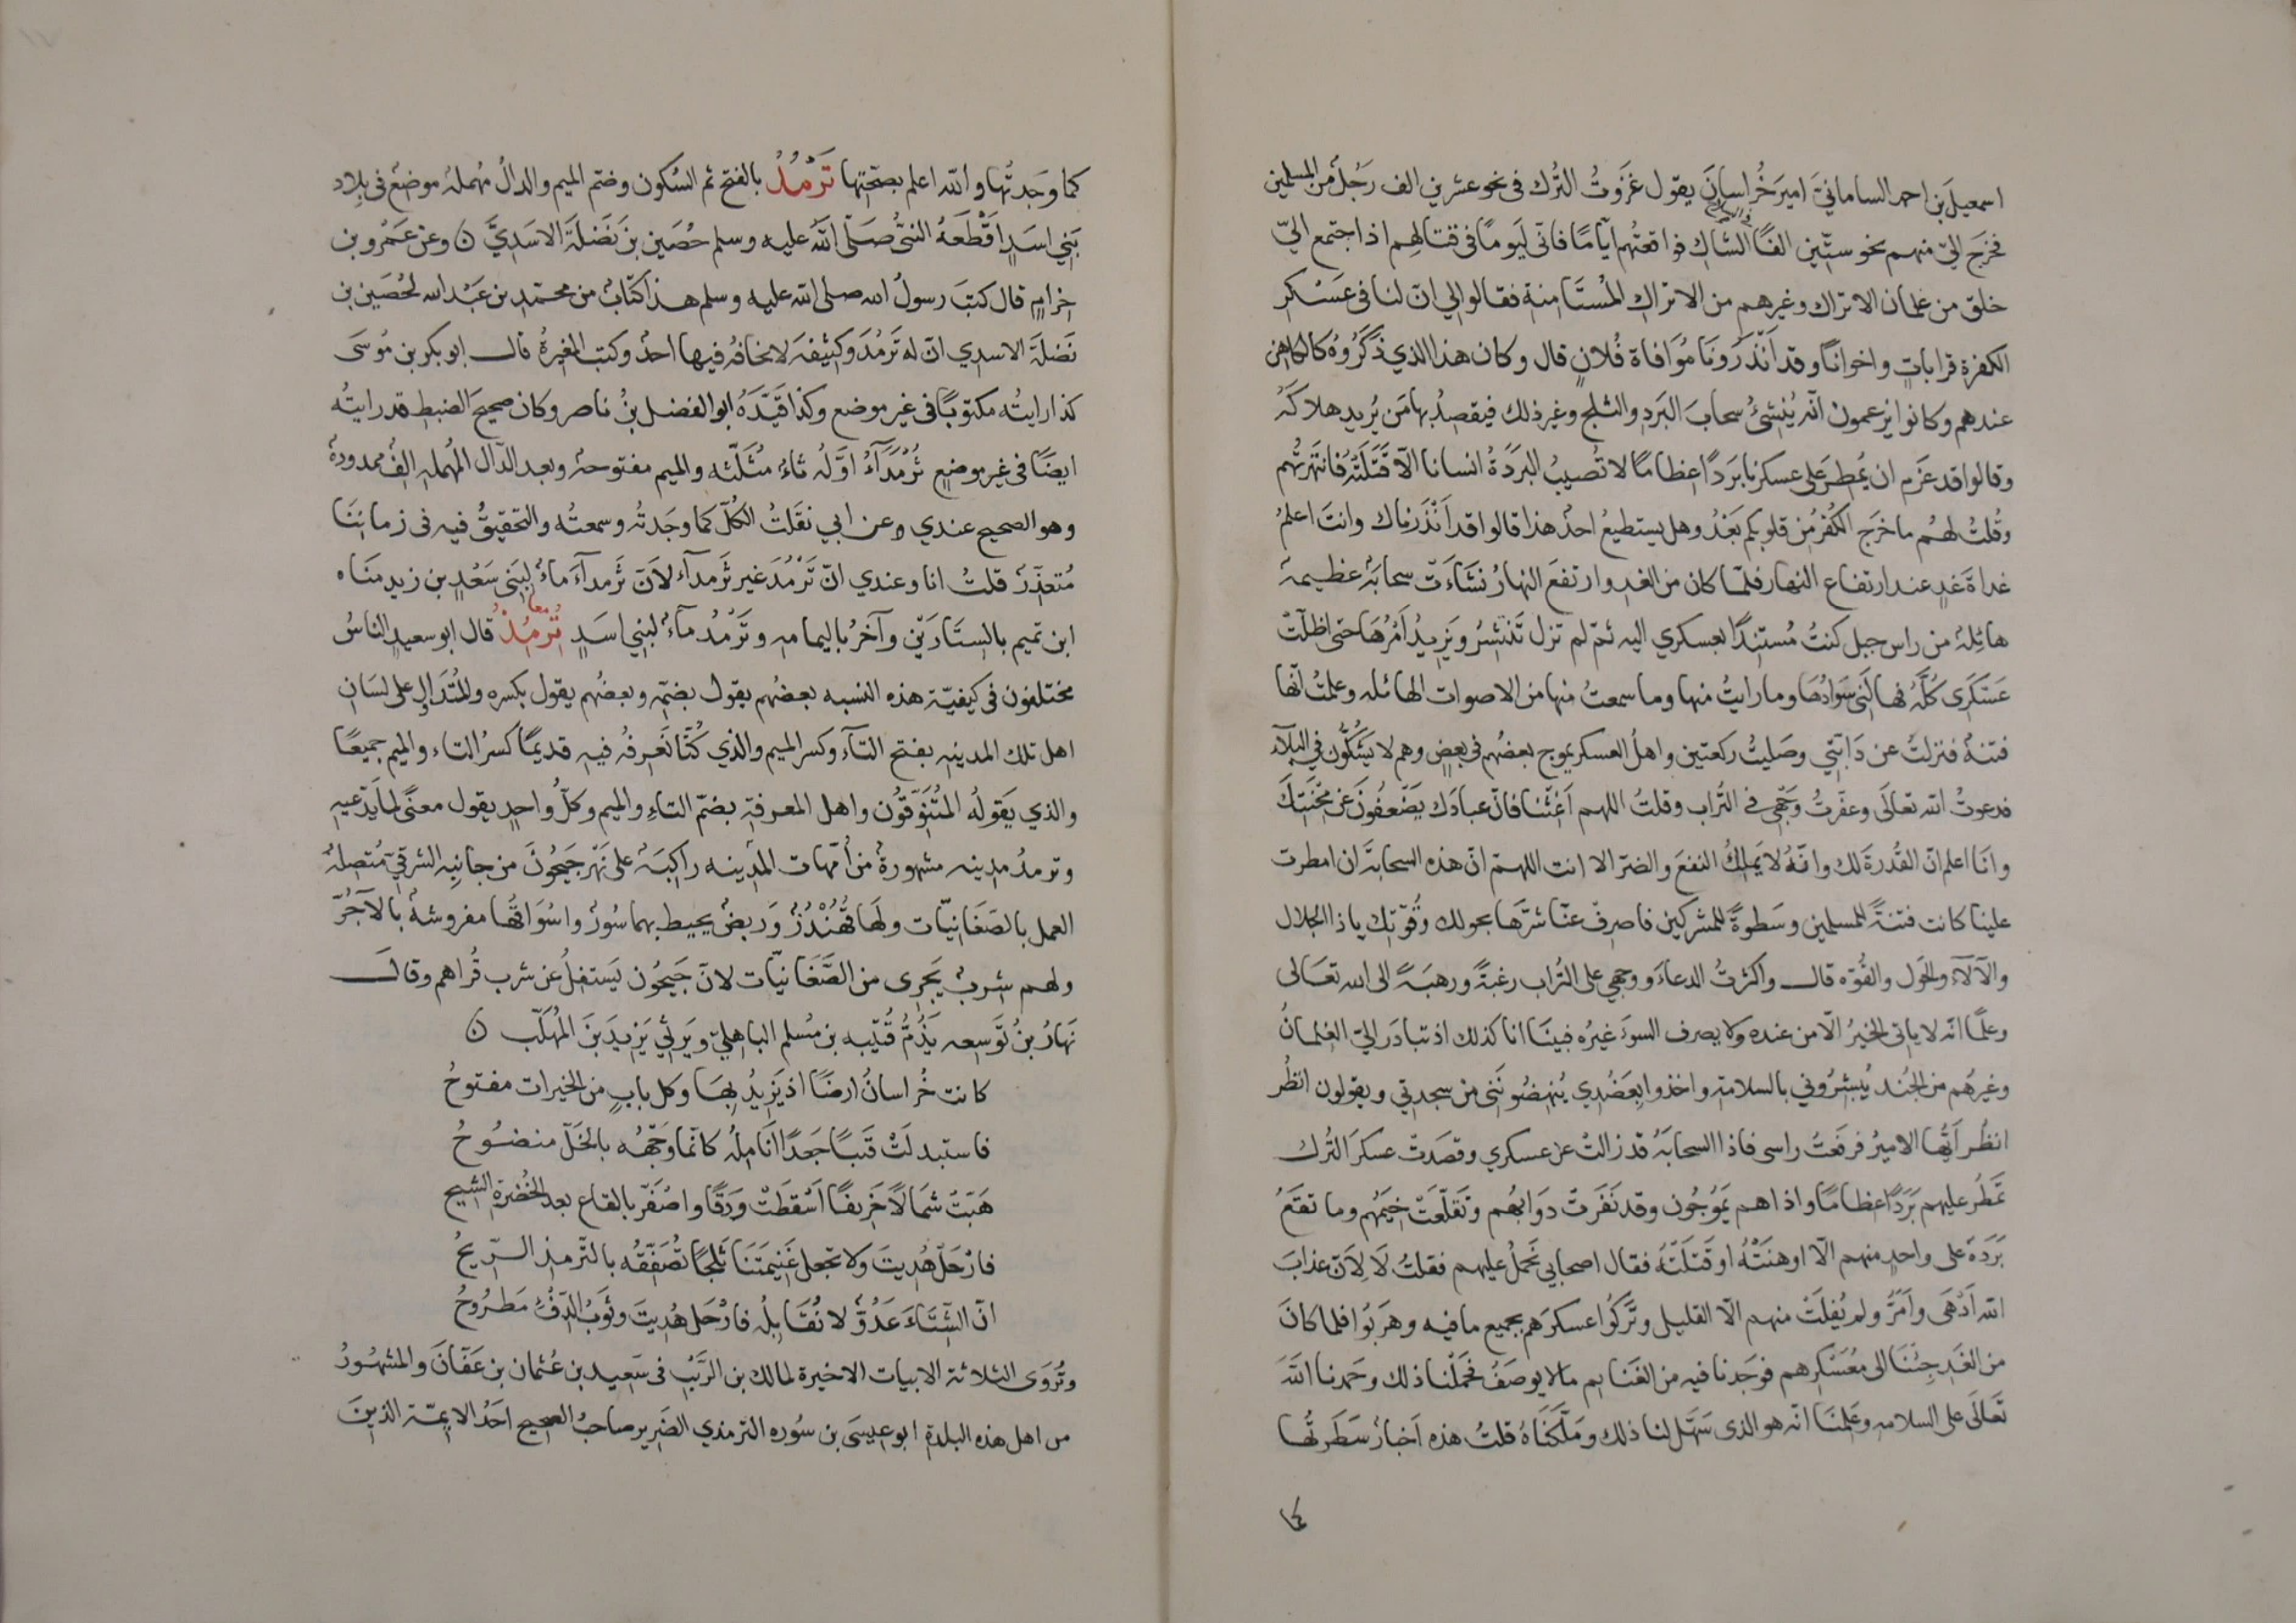 اسمعيلَ بن احمد السامانيّ اميرَ خُراسانَ يقول غزَوتُ التُرك فى نحو عشرين الف رَجُل من المسلمين
فخرَج اليّ منهم نحو ستّين الفًا الشاك فواقعتُهم ايّامًا فانّى ليَومًا فى قتالِهم اذا اجتمع اليّ
خلق من غلمان الاتراك وغيرهم من الاتراك المُستَامِنة فقالوا لي انّ لنا فى عَسْكر
الكفرة قراباتٍ واخوانًا وقد اَنذَرونَا مُوافاة فُلانٍ قال وكان هذا الذي ذكَرُوهُ كالكاهن
عندهم وكانوا يزعمون انّه يُنشئُ سحابَ البَردِ والثلج وغير ذلك فيقصدُ بها مَن يُريد هلاكَهُ
وقالوا قد عزَم ان يُمطِرَ على عسكرنا برَدًا عِظامًا لا تُصيبُ البَردَةُ انسانا الّا قَتَلَتْهُ فانتهَرتُهم
وقُلتُ لهُم ما خرَج الكُفرُ مِن قلوبكم بَعْدُ وهل يستطيعُ احدٌ هذا قالوا قد اَنْذَرناك وانتَ اعلمُ
غداةَ غدٍ عند ارتفاع النهار فلمّا كان من الغدِ وارتفعَ النهارُ نَشاءَت سحابَةٌ عظيمةٌ
هائِلةٌ من راس جبل كنتُ مُستَنِدًا بعسكري اليه ثمّ لم تزل تَنتشِرُ ويَزيدُ اَمْرُهَا حتى اظلّت
عَسكَرى كلّهُ فهالَنى سَوادُهَا وما رايتُ منها وما سمعتُ منها من الاصوات الهائله وعلمتُ انّها
فتنةٌ فنزلتُ عن دَابّتي وصَليتُ ركعتين واهلُ العسكر يموج بعضُهم فى بعضٍ وهم لا يَشكّون فى البلآء
فدعوتُ الله تعالَى وعفّرتُ وَجهى فى التُراب وقلتُ اللهم اَغِثنا فانّ عبادَك يضعُفُونَ عَن مِحْنَتِكَ
وانَا اعلم انّ القُدرةَ لك وانّهُ لا يَملِكُ النفعَ والضرّ الا انت اللهمّ انّ هذه السحابةَ ان امطرت
علينا كانت فتنةً للمسلمين وسَطوةً للمشركين فاصرِف عنّا شرَّها بحولك وقُوّتِك ياذا الجلال
والآلآءِ والحَول والقُوّه قال واكثرتُ الدعاءَ ووجهي على التُراب رغبةً ورهبَةً الى الله تعَالى
وعلمًا انّه لا ياتى الخيرُ الّا من عنده ولا يصرف السوءَ غيرُه فبينَا انا كذلك اذ تبادَر اليّ الغِلمانُ
وغيرُهم من الجُند يُبشِرُوني بالسلامة واخذوا بعَضُدِي يُنهِضُونَنى من سجدتي ويقولون انظُر
انظُر اَيُّها الاميرُ فرفَعتُ راسى فاذا السحابَةُ قد زالت عن عسكري وقصَدت عسكرَ التُرك
تمطُر عليهم برَدًا عظامًا واذا هم يَمُوجُون وقد نَفَرت دَوابُّهم وتقلّعَت خِيَمُهم وما تقعُ
بَردَةٌ على واحدٍ منهم الّا اوهنَتْهُ او قَتَلَتْه فقال اصحابي نَحْمِلُ عليهم فقلتُ لَا لِاَنّ عذابَ
الله اَدْهَى واَمَرُّ ولم يُفلِت منهم الّا القليل وتَرَكُوا عسكرَهم بجميع ما فيه وهرَبُوا فلما كانَ
من الغدِ جِئْنَا الى مُعَسْكرهم فوَجدنا فيه من الغنايم مالا يوصَفُ فحَمَلْنا ذلك وحَمدنا اللهَ
تعَالَى على السلامه وعَلِمْنَا انّه هو الذى سَهّل لنا ذلك ومَلّكَنَاهُ قلتُ هذه اَخبارٌ سَطَرتُها
كما
كما وجَدتُها والله اعلم بصحّتها تَرْمُدُ بالفتح ثم السُكون وضمّ الميم والدالُ مُهملةٌ موضعٌ فى بلاد
بَنِي اسَدٍ اَقْطَعَهُ النبيُّ صَلّى اللهُ عليه وسلم حُصَين بن نَضْلَةَ الاسَدِيَّ ن وعن عَمْرو بن
حِزامٍ قال كتبَ رسولُ الله صلى الله عليه وسلم هذا كتابٌ من محمّدٍ بن عَبْد الله لحُصَين بن
نَضلَةَ الاسدِي انّ له تَرمُدَ وكُتَيْفَةَ لا يحاقُهُ فيها احدٌ وكتبَ المغيرةُ قال ابو بكر بن مُوسَى
كذا رايتُه مكتوبًا فى غير موضع وكذا قَيّدَهُ ابو الفضل بنُ ناصر وكان صحيحَ الضبطِ وقد رايتُه
ايضًا فى غير موضعٍ ثَرْمَدَآءُ اوّلُه ثاءٌ مثلّثه والميم مفتوحةٌ وبعد الدّال المُهملهِ الفٌ ممدودةٌ
وهو الصحيح عندي وعن ابي نقَلتُ الكُلّ كما وجَدتُه وسمعتُه والتحقيقُ فيه فى زمانِنَا
مُتعذّرٌ قلتُ انا وعندي انّ تَرْمُدَ غير ثَرمدآء لاَنّ ثَرمدآءَ ماءٌ لِبَنى سَعْدٍ بن زيد مَنَاه
ابن تميم بالسِتَارَيْن وآخرُ باليمامه وتَرْمُد مآءٌ لبني اسَدٍ تُرْمِذُ معا قال ابو سعيدٍ الناسُ
مختلفون فى كيفيّة هذه النسبه بعضُهم يقول بضمّه وبعضُهم يقول بكسره والمُتَدَاول على لسَان
اهل تلك المدينه بفتح التآء وكسر الميم والذي كُنّا نَعرِفُه فيه قديمًا كسرُ التاء والميم جميعًا
والذي يَقولُه المُتَنَوّقُون واهل المعرفةِ بضمّ التاءِ والميم وكلُّ واحدٍ يقول معنًى لما يَدّعيهِ
وترمذُ مدينه مشهورةٌ من اُمّهات المدينه راكِبَةٌ على نهر جَيحُونَ من جانِبِه الشرقيّ مُتصلةٌ
العمل بالصَغَانِيّات ولهَا قُهُنْدُزٌ وَربضٌ يحيط بهما سُورٌ واسْوَاقُها مفروشةٌ بالآجُرّ
ولهم شربٌ يَجرِى من الصَّغَانيّات لانّ جَيحُون يَستفِلُ عن شرب قُراهم وقال
نَهَارُ بنُ تَوسعه يَذُمُّ قُتَيْبه بن مُسلم الباهليّ ويَرثِي يَزيدَ بنَ المُهَلّب ن
كانت خُراسانُ ارضًا اذ يَزيدُ بِهَا وكل بابٍ من الخيرات مفتوحُ
فاستبدلَتْ قَتَبًا جَعْدًا انَامِلُه كانّما وَجْهُه بالخَلّ منضُوحُ
هَبّت شمَالًا خَرِيفًا اَسْقطَتْ وَرَقًا واصْفَرّ بالقاع بعد الخُضرةِ الشِيح
فارْحَلْ هُدِيتَ ولا تجعل غَنِيمَتَنَا ثَلجًا تُصَفِّقُه بالتّرمذ الرّيحُ
انّ الشتاءَ عَدُوٌّ لا نُقَابِلُه فارْحَل هُدِيتَ وثَوبُ الدّفْءِ مَطرُوحُ
وتُروَى الثلاثة الابيات الاخيرة لمالك بن الرّيب فى سَعيد بن عُثمان بن عَفّانَ والمشهُورُ
من اهل هذه البلدةِ ابو عيسَى بن سُوره الترمذي الضَرير صاحبُ الصحيح احَدُ الايمّة الذينَ